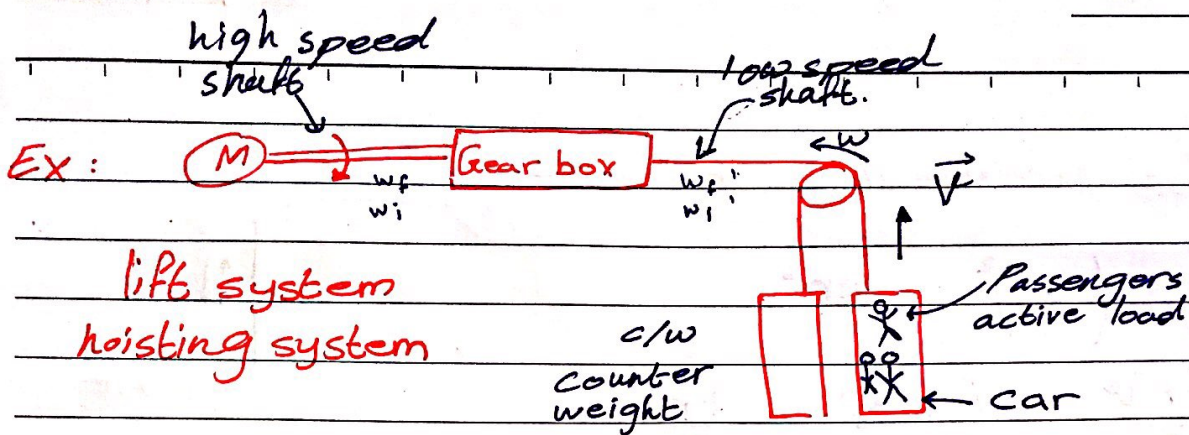 high speed
shaft
low speed
shaft.
Ex :
M
Gear box
w
V
wf
wi
wf'
wi'
lift system
hoisting system
c/w
counter
weight
Passengers
active load
car